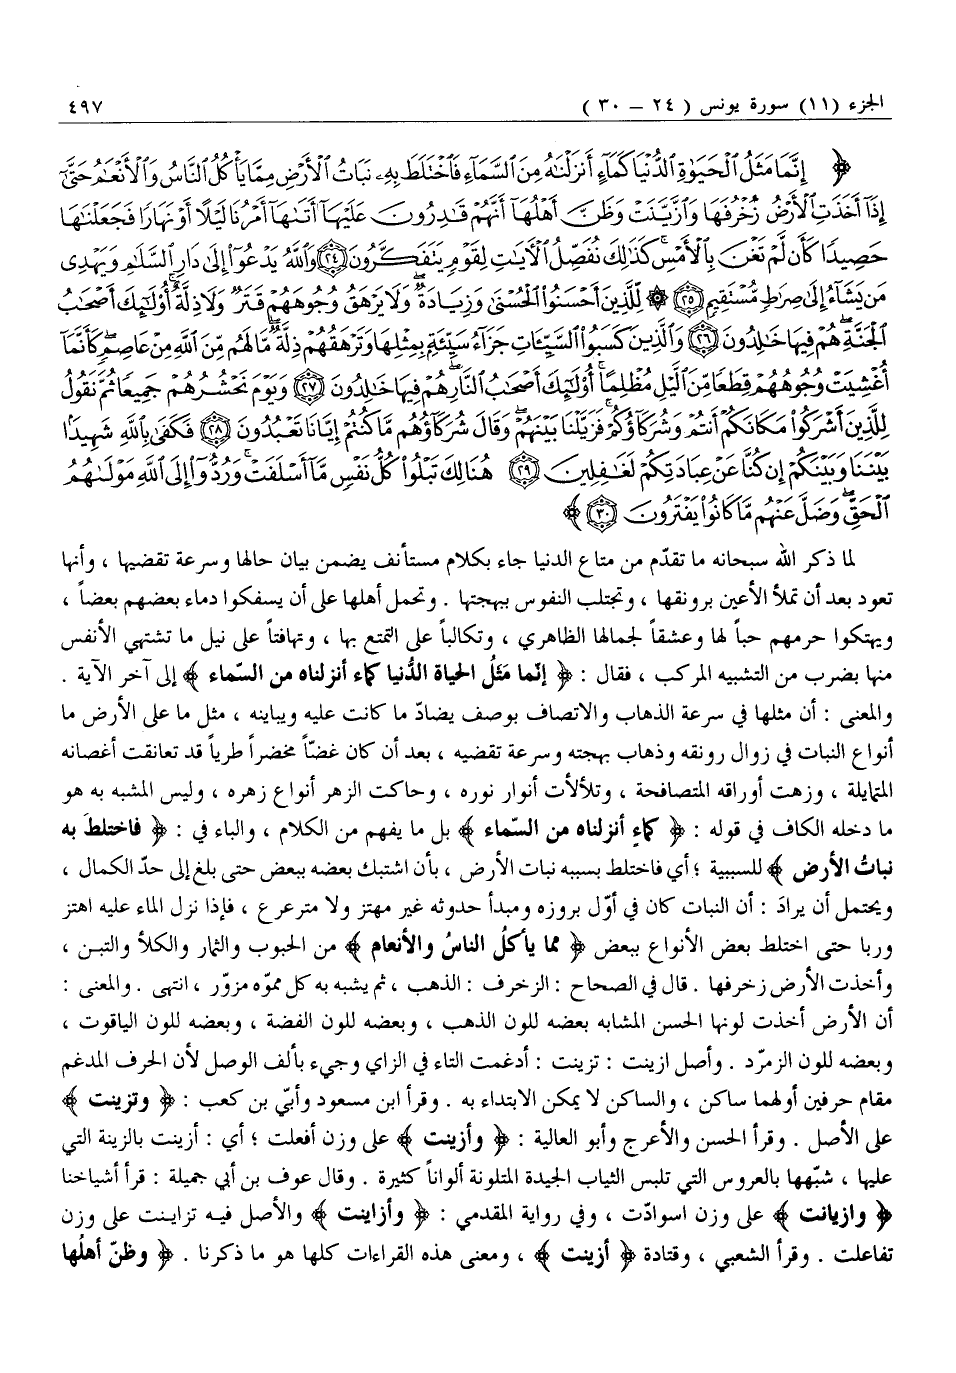 الجزء (١١) سورة يونس ( ٢٤ – ٣٠ ) ٤٩٧
﴿ إِنَّمَا مَثَلُ الْحَيَوٰةِ الدُّنْيَا كَمَآءٍ أَنزَلْنَٰهُ مِنَ السَّمَآءِ فَاخْتَلَطَ بِهِۦ نَبَاتُ الْأَرْضِ مِمَّا يَأْكُلُ النَّاسُ وَالْأَنْعَٰمُ حَتَّىٰٓ
إِذَآ أَخَذَتِ الْأَرْضُ زُخْرُفَهَا وَازَّيَّنَتْ وَظَنَّ أَهْلُهَآ أَنَّهُمْ قَٰدِرُونَ عَلَيْهَآ أَتَىٰهَآ أَمْرُنَا لَيْلًا أَوْ نَهَارًا فَجَعَلْنَٰهَا
حَصِيدًا كَأَن لَّمْ تَغْنَ بِالْأَمْسِ ۚ كَذَٰلِكَ نُفَصِّلُ الْآيَٰتِ لِقَوْمٍ يَتَفَكَّرُونَ ٢٤ وَاللَّهُ يَدْعُوٓا۟ إِلَىٰ دَارِ السَّلَٰمِ وَيَهْدِى
مَن يَشَآءُ إِلَىٰ صِرَٰطٍ مُّسْتَقِيمٍ ٢٥ ۞ لِّلَّذِينَ أَحْسَنُوا۟ الْحُسْنَىٰ وَزِيَادَةٌ ۖ وَلَا يَرْهَقُ وُجُوهَهُمْ قَتَرٌ وَلَا ذِلَّةٌ ۚ أُو۟لَٰٓئِكَ أَصْحَٰبُ
الْجَنَّةِ ۖ هُمْ فِيهَا خَٰلِدُونَ ٢٦ وَالَّذِينَ كَسَبُوا۟ السَّيِّـَٔاتِ جَزَآءُ سَيِّئَةٍۭ بِمِثْلِهَا وَتَرْهَقُهُمْ ذِلَّةٌ ۖ مَّا لَهُم مِّنَ اللَّهِ مِنْ عَاصِمٍ ۖ كَأَنَّمَآ
أُغْشِيَتْ وُجُوهُهُمْ قِطَعًا مِّنَ الَّيْلِ مُظْلِمًا ۚ أُو۟لَٰٓئِكَ أَصْحَٰبُ النَّارِ ۖ هُمْ فِيهَا خَٰلِدُونَ ٢٧ وَيَوْمَ نَحْشُرُهُمْ جَمِيعًا ثُمَّ نَقُولُ
لِلَّذِينَ أَشْرَكُوا۟ مَكَانَكُمْ أَنتُمْ وَشُرَكَآؤُكُمْ ۚ فَزَيَّلْنَا بَيْنَهُمْ ۖ وَقَالَ شُرَكَآؤُهُم مَّا كُنتُمْ إِيَّانَا تَعْبُدُونَ ٢٨ فَكَفَىٰ بِاللَّهِ شَهِيدًۢا
بَيْنَنَا وَبَيْنَكُمْ إِن كُنَّا عَنْ عِبَادَتِكُمْ لَغَٰفِلِينَ ٢٩ هُنَالِكَ تَبْلُوا۟ كُلُّ نَفْسٍ مَّآ أَسْلَفَتْ ۚ وَرُدُّوٓا۟ إِلَى اللَّهِ مَوْلَىٰهُمُ
الْحَقِّ ۖ وَضَلَّ عَنْهُم مَّا كَانُوا۟ يَفْتَرُونَ ٣٠ ﴾
لما ذكر الله سبحانه ما تقدّم من متاع الدنيا جاء بكلام مستأنف يضمن بيان حالها وسرعة تقضيها ، وأنها
تعود بعد أن تملأ الأعين برونقها ، وتجتلب النفوس ببهجتها . وتحمل أهلها على أن يسفكوا دماء بعضهم بعضاً ،
ويهتكوا حرمهم حباً لها وعشقاً لجمالها الظاهري ، وتكالباً على التمتع بها ، وتهافتاً على نيل ما تشتهي الأنفس
منها بضرب من التشبيه المركب ، فقال : ﴿ إنّما مَثَلُ الحياة الدُّنيا كماء أنزلناه من السّماء ﴾ إلى آخر الآية .
والمعنى : أن مثلها في سرعة الذهاب والاتصاف بوصف يضادّ ما كانت عليه ويباينه ، مثل ما على الأرض ما
أنواع النبات في زوال رونقه وذهاب بهجته وسرعة تقضيه ، بعد أن كان غضّاً مخضراً طرياً قد تعانقت أغصانه
المتمايلة ، وزهت أوراقه المتصافحة ، وتلألأت أنوار نوره ، وحاكت الزهر أنواع زهره ، وليس المشبه به هو
ما دخله الكاف في قوله : ﴿ كماءٍ أنزلناه من السّماء ﴾ بل ما يفهم من الكلام ، والباء في : ﴿ فاختلطَ به
نباتُ الأرض ﴾ للسببية ؛ أي فاختلط بسببه نبات الأرض ، بأن اشتبك بعضه ببعض حتى بلغ إلى حدّ الكمال ،
ويحتمل أن يرادَ : أن النبات كان في أوّل بروزه ومبدأ حدوثه غير مهتز ولا مترعرع ، فإذا نزل الماء عليه اهتز
وربا حتى اختلط بعض الأنواع ببعض ﴿ مما يأكلُ الناسُ والأنعام ﴾ من الحبوب والثمار والكلأ والتبن ،
وأخذت الأرض زخرفها . قال في الصحاح : الزخرف : الذهب ، ثم يشبه به كل مموّه مزوّر ، انتهى . والمعنى :
أن الأرض أخذت لونها الحسن المشابه بعضه للون الذهب ، وبعضه للون الفضة ، وبعضه للون الياقوت ،
وبعضه للون الزمرّد . وأصل ازينت : تزينت : أدغمت التاء في الزاي وجيء بألف الوصل لأن الحرف المدغم
مقام حرفين أولهما ساكن ، والساكن لا يمكن الابتداء به . وقرأ ابن مسعود وأبيّ بن كعب : ﴿ وتزينت ﴾
على الأصل . وقرأ الحسن والأعرج وأبو العالية : ﴿ وأزينت ﴾ على وزن أفعلت ؛ أي : أزينت بالزينة التي
عليها ، شبّهها بالعروس التي تلبس الثياب الجيدة المتلونة ألواناً كثيرة . وقال عوف بن أبي جميلة : قرأ أشياخنا
﴿ وازيانت ﴾ على وزن اسوادّت ، وفي رواية المقدمي : ﴿ وأزاينت ﴾ والأصل فيه تزاينت على وزن
تفاعلت . وقرأ الشعبي ، وقتادة ﴿ أزينت ﴾ ، ومعنى هذه القراءات كلها هو ما ذكرنا . ﴿ وظنّ أهلُها